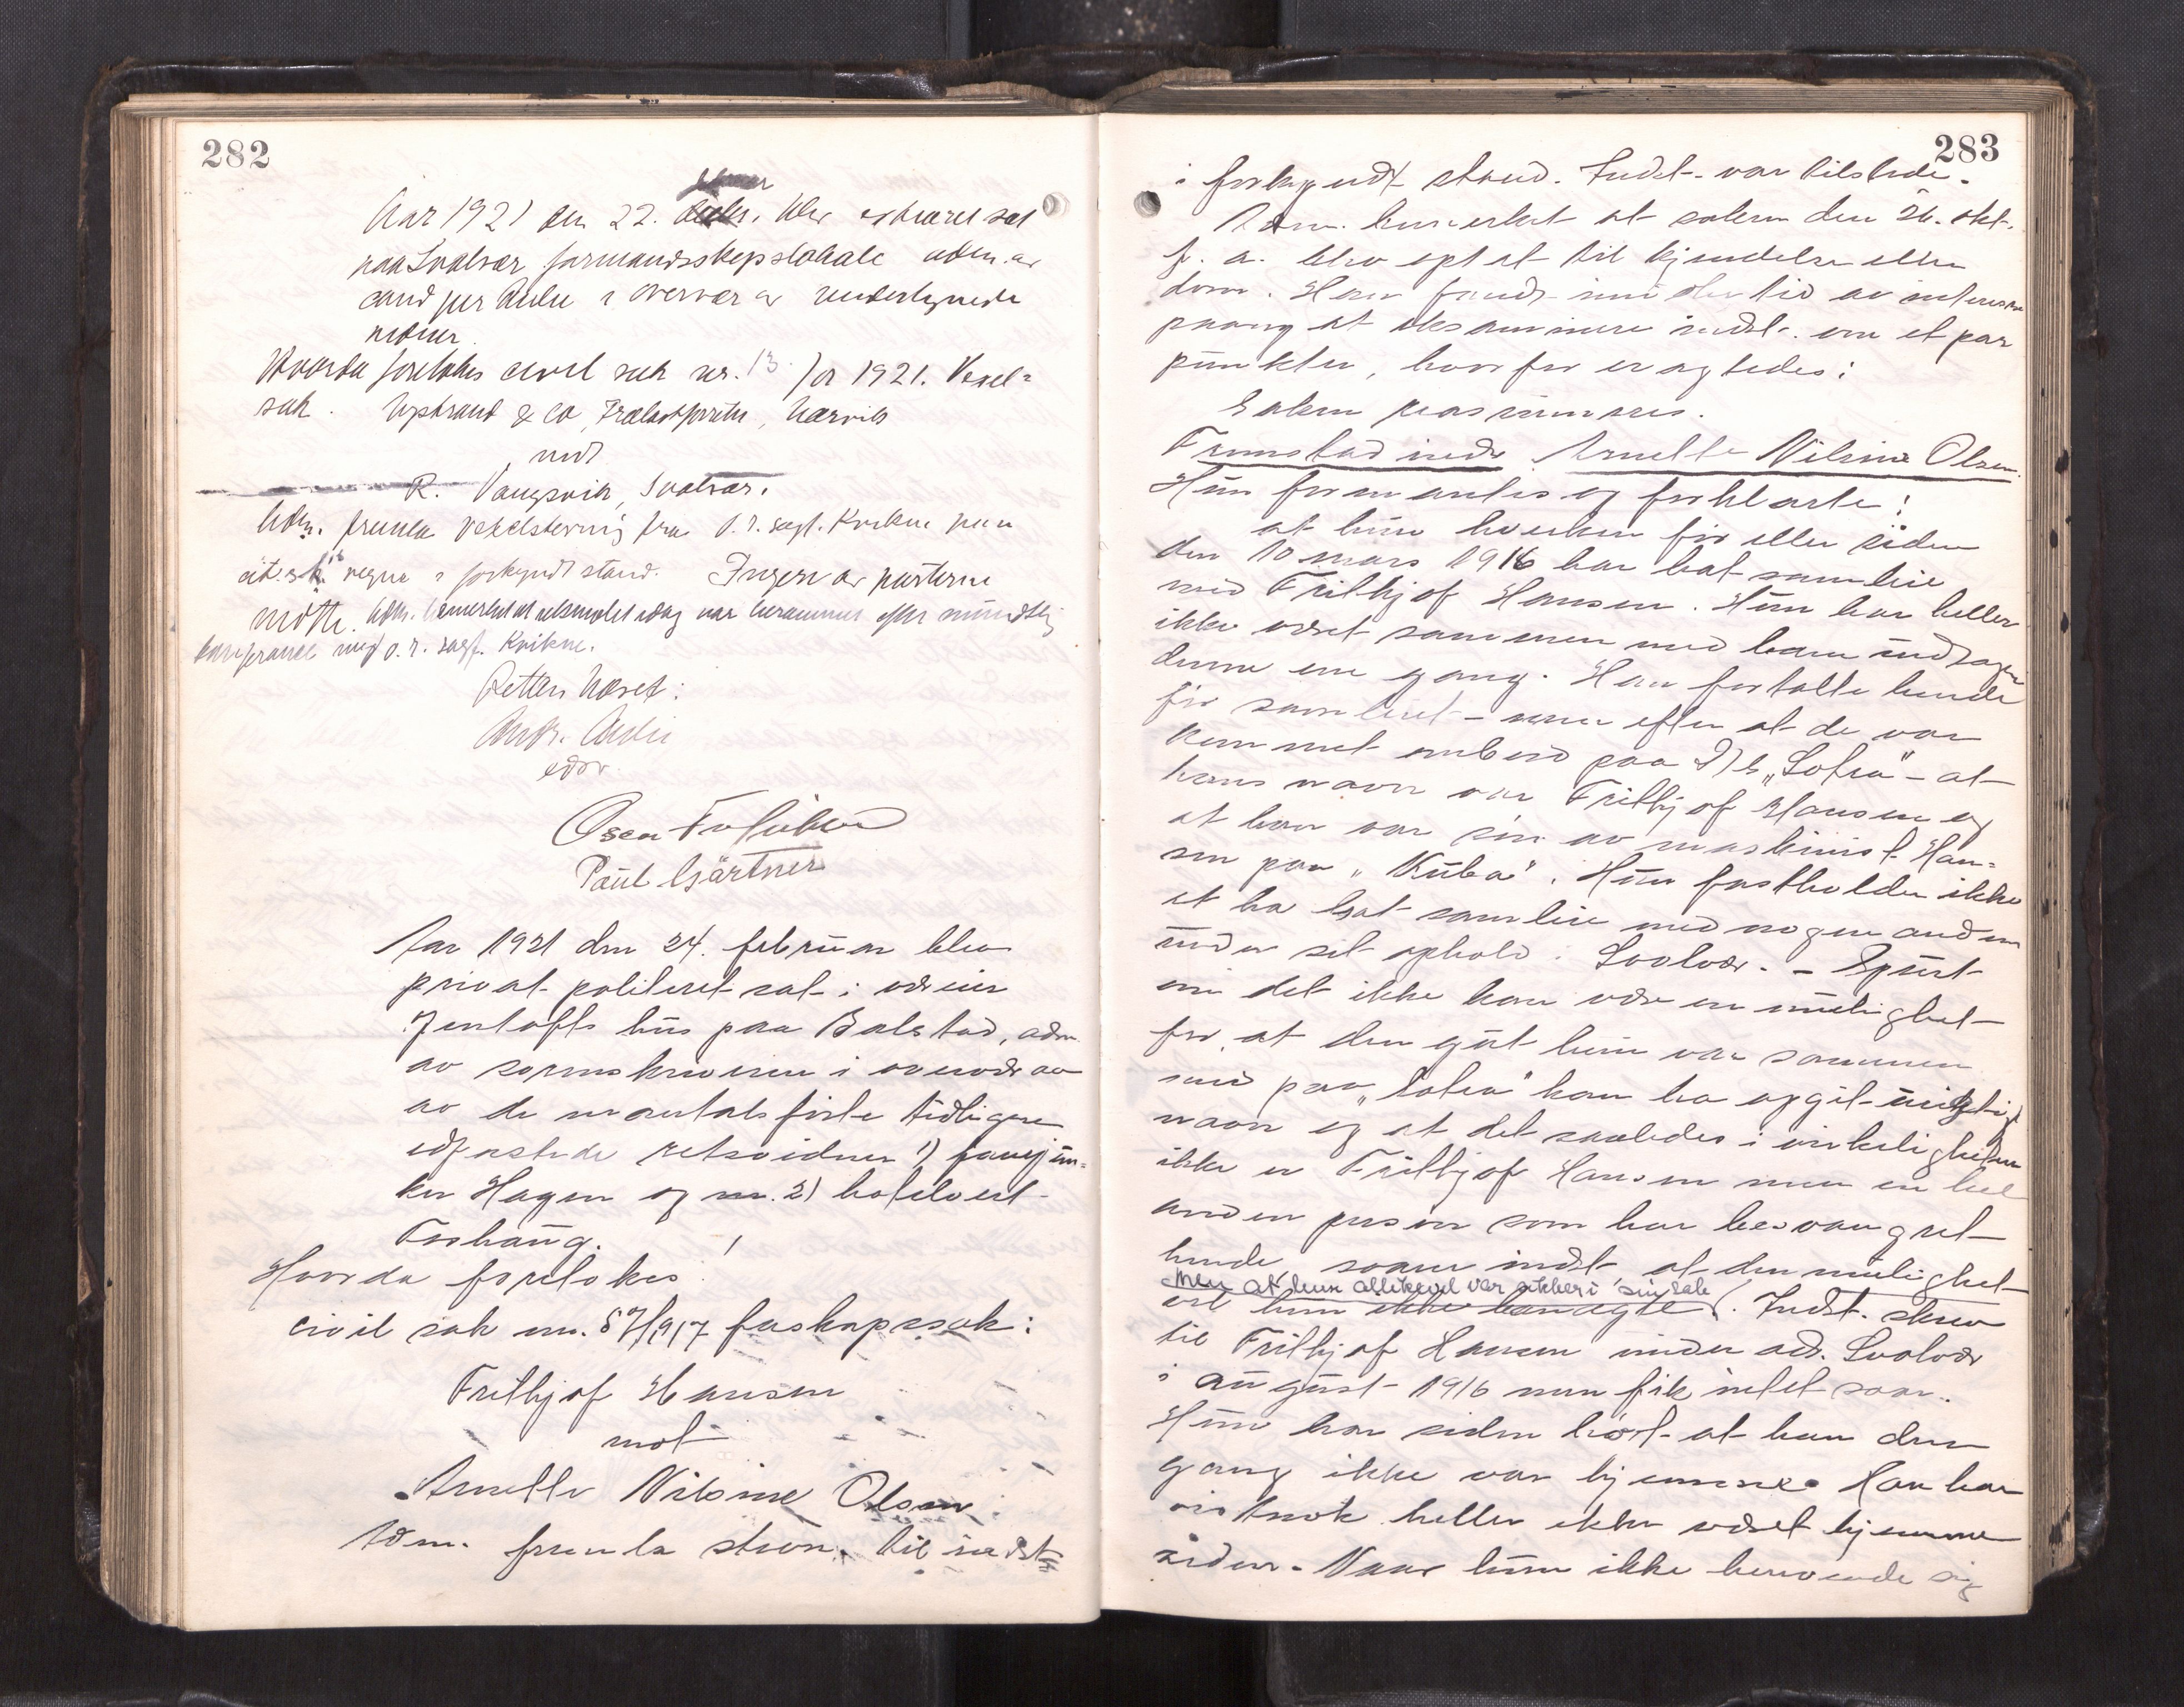 282
Aar 1921 den 22. blev extraret sat
paa Svolvær formandsskapslokale adm. av
cand jur i overvær av undertegnede
vidner.
Hvorda foretokes civil sak nr. 13 for 1921. Vexel-
sak. & Co, Narvik
mot
R. Vangsvik, Svolvær.
Adm. fremla vekselstevning fra o.r. sagf. Kvikne paa
cit. regne i forkyndt stand. Ingen av parterne
møtte. Adm. bemerket at retsmøtet idag var berammet efter mundtlig
konferanse med o.r. sagf. Kvikne.
Retten hævet:
Andr.
edsv.
Paul Gärtner
Aar 1921 den 24. februar blev
privat politiret sat i væreier
Jentofts hus paa Balstad, adm.
av sorenskriveren i overvær av
av de mantalsførte tidligere
edfæstede retsvidner 1)
ker Hagen og nr. 2) hotelvert
Forhaug.
Hvorda foretokes:
civil sak nr. 57/1917 farskapssak:
Frithjof Hansen
mot
Arnette Nilsine Olsen
Adm. fremla stevn. til indst.
283
i forkyndt stand. Indst. var tilstede.
Adm. bemerket at saken den 26. okt.
f. a. blev optat til kjendelse eller
dom. Han fandt imidlertid av interesse
paany at eksaminere indst. om et par
punkter, hvorfor eragtedes:
Saken reassumeres.
Fremstod indst. Arnette Nilsine Olsen.
Hun formantes og forklarte:
at hun hverken før eller siden
den 10 mars 1916 har hat samleie
med Frithjof Hansen. Hun har heller
ikke været sammen med ham undtagen
denne ene gang. Han fortalte hende
før samleiet – men efter at de var
kommet ombord paa D/s "Lofra" – at
hans navn var Frithjof Hansen og
at han var søn av maskinist Han-
sen paa "Kuba". Hun fastholder ikke
at ha hat samleie med nogen anden
under sit ophold i Svolvær. – Spurt
om det ikke kan være en mulighet
for, at den gut hun var sammen
med paa "Lofra" kan ha opgit urigtig
navn og at det saaledes i virkeligheten
ikke er Frithjof Hansen men en hel
anden person som har besvangret
hende, svarer indst. at den mulighet
men at hun allikevel var sikker i sin sak
vil hun ikke benægte. Indst. skrev
til Frithjof Hansen under adr. Svolvær
i august 1916 men fik intet svar.
Hun har siden hørt at han den
gang ikke var hjemme. Han har
visstnok heller ikke været hjemme
siden. Naar hun ikke henvendte sig